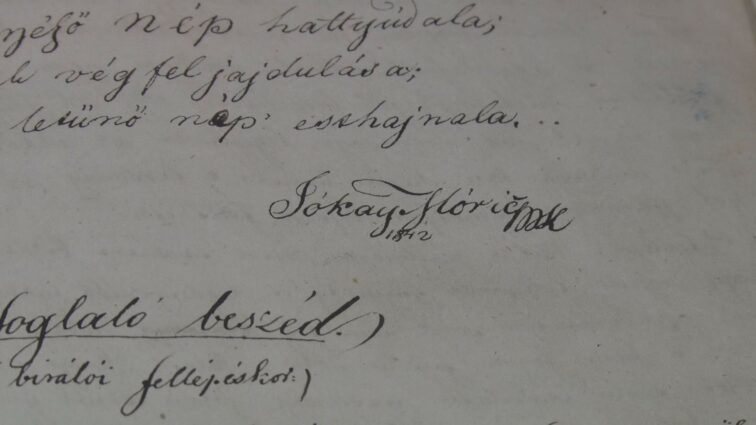 nép hattyúdala;
vég feljajdulása;
letünő nép' esthajnala...
Jókay Móric
1842
foglaló beszéd.)
birálói felléptéskor:)